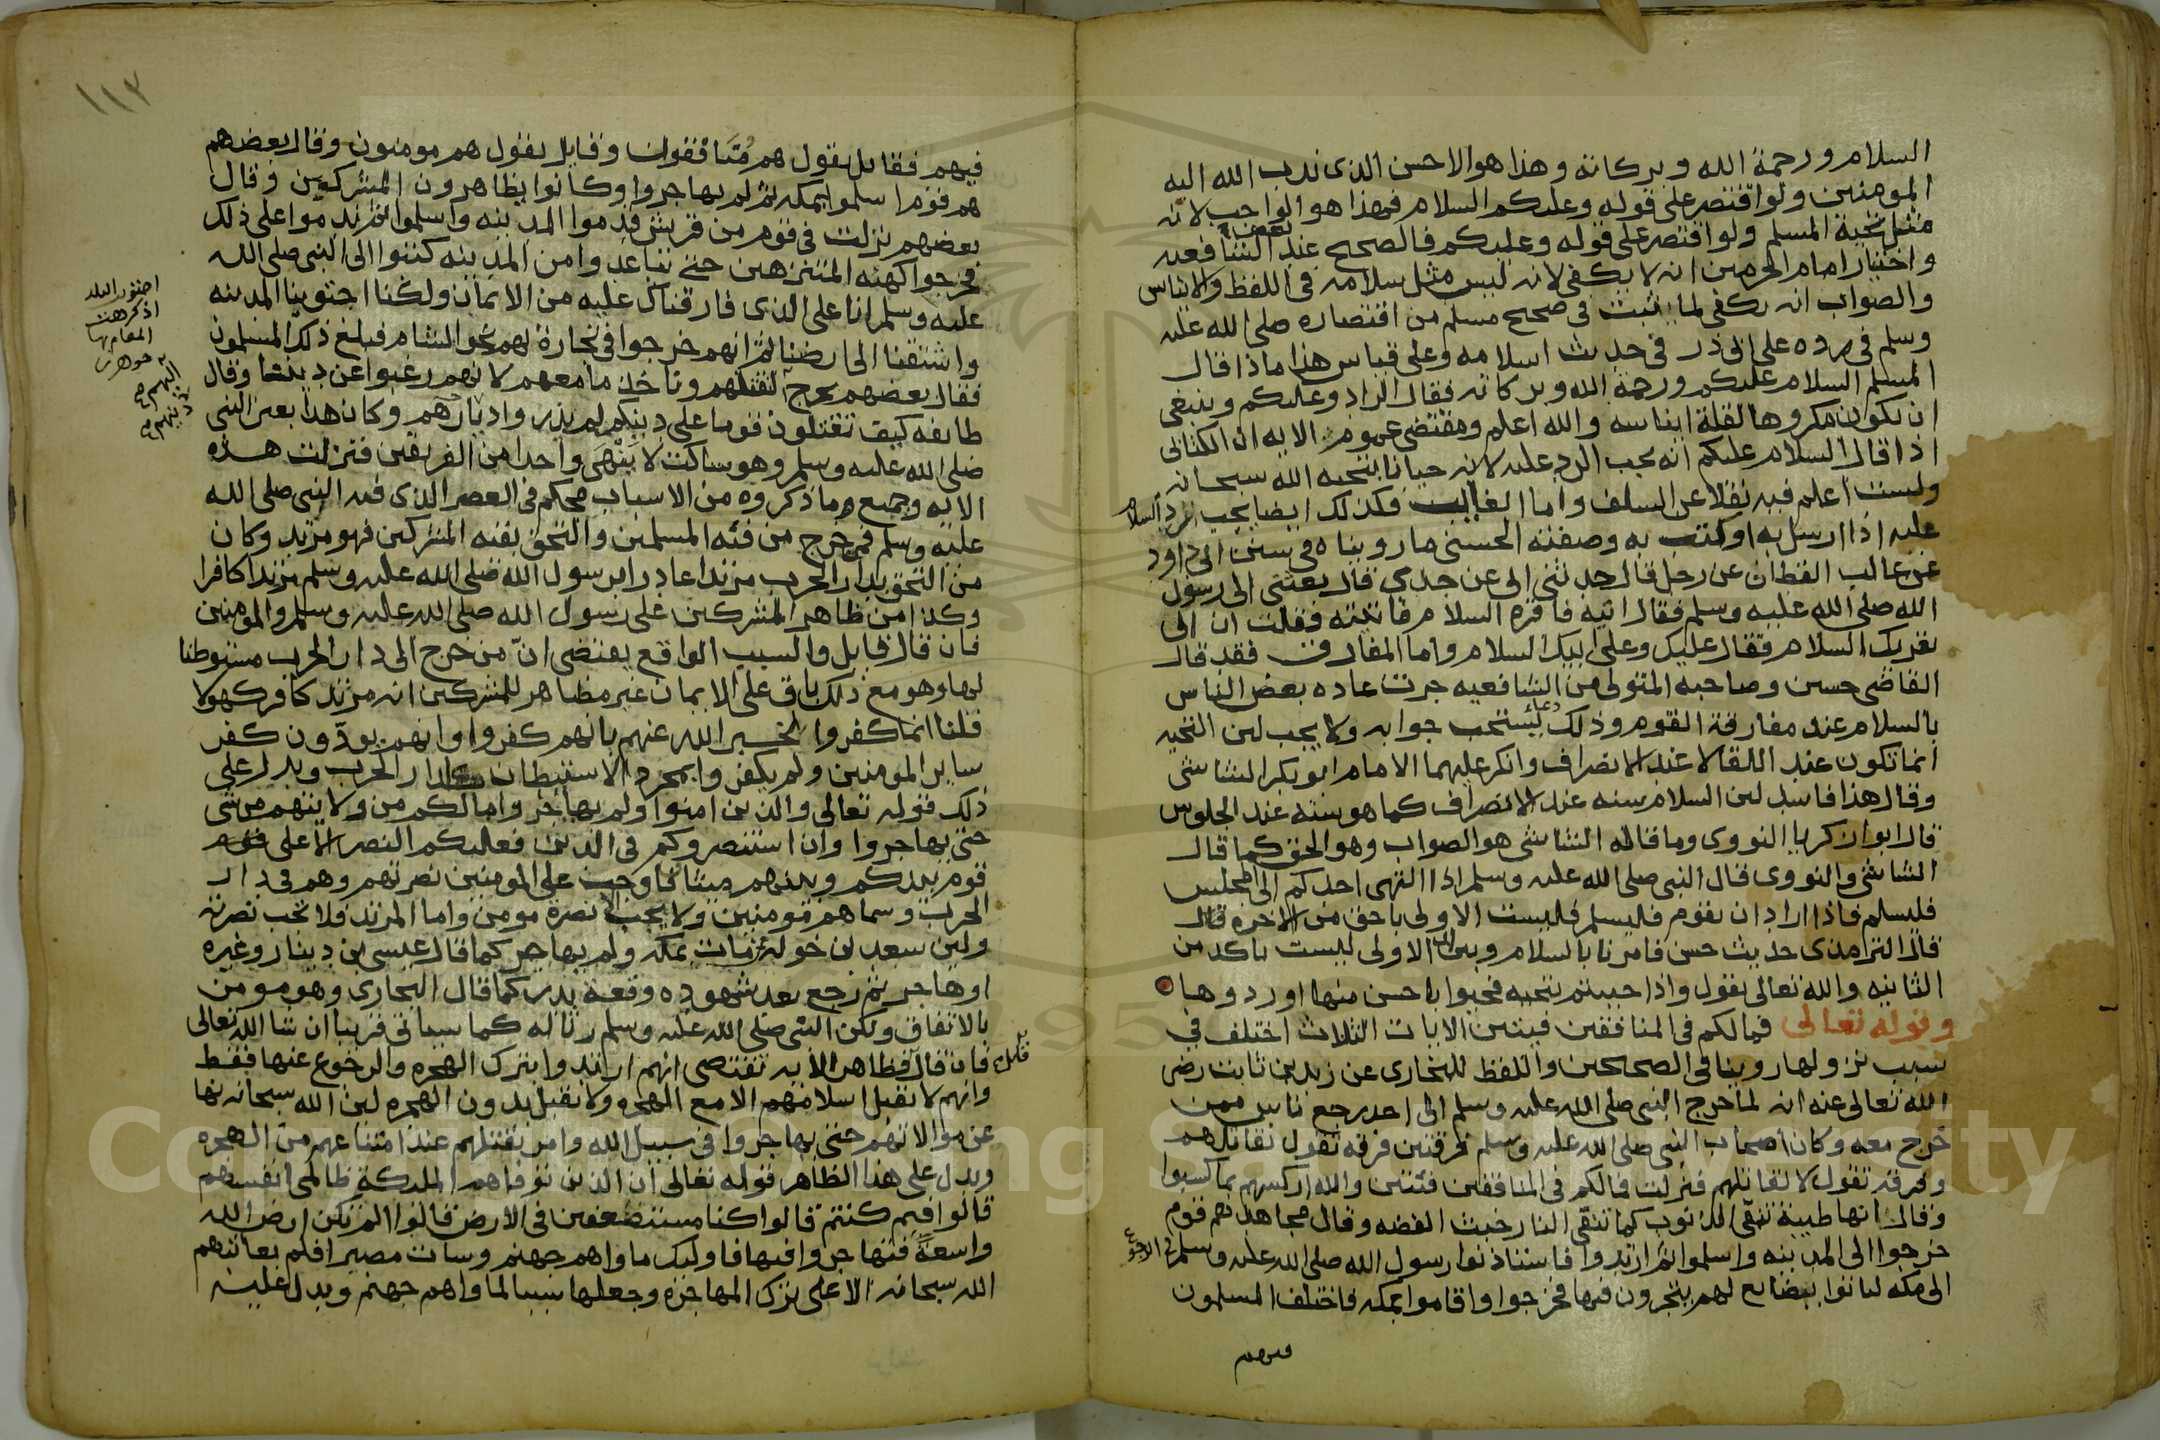 السلام ورحمة الله وبركاته وهذا هو الاحسن الذى ندب الله اليه
المومنين ولو اقتصر على قوله وعليكم السلام فهذا هو الواجب لانه
مثل تحية المسلم ولو اقتصر على قوله وعليكم فالصحيح عند بعض الشافعيه
واختيار امام الحرمين انه لا يكفى لانه ليس مثل سلامه فى اللفظ والايناس
والصواب انه يكفى لما ثبت فى صحيح مسلم من اقتصاره صلى الله عليه
وسلم فى رده على ابى ذر فى حديث اسلامه وعلى قياس هذا ماذا قال
المسلم السلام عليكم ورحمة الله وبركاته فقال الراد وعليكم وينبغى
ان يكون مكروها لقلة ايناسه والله اعلم ومقتضى عموم الايه ان الكتابى
اذا قال السلام عليكم انه يجب الرد عليه لانه حيانا بتحيه الله سبحانه
ولست اعلم فيه نقلا عن السلف واما الغائب فكذلك ايضا يجب رد السلام
عليه اذا ارسل به او كتب به وصفته الحسنى ما رويناه فى سنن ابى داود
عن غالب القطان عن رجل قال حدثنى ابى عن جدي قال بعثنى ابى الى رسول
الله صلى الله عليه وسلم فقال ائيه فاقره السلام فاتيته فقلت ان ابى
يقريك السلام فقال عليك وعلى ابيك السلام واما المفارق فقد قال
القاضى حسين وصاحبه المتولى من الشافعيه جرت عاده بعض الناس
بالسلام عند مفارقة القوم وذلك دعا يستحب جوابه ولا يجب لان التحيه
انما تكون عند اللقا لا عند الانصراف وانكر عليهما الامام ابو بكر الشاشى
وقال هذا فاسد لان السلام سنه عند الانصراف كما هو سنة عند الجلوس
قال ابو زكريا النووى وما قاله الشاشى هو الصواب وهو الحق كما قال
الشاشى والنووى قال النبى صلى الله عليه وسلم اذا انتهى احدكم الى المجلس
فليسلم فاذا اراد ان يقوم فليسلم فليست الاولى باحق من الاخره قال
قال الترمذى حديث حسن فامرنا بالسلام وبين ان الاولى ليست باكد من
الثانيه والله تعالى يقول واذا حييتم بتحيه فحيوا باحسن منها او ردوها
وقوله تعالى فمالكم فى المنافقين فيتين الايات الثلاث اختلف فى
سبب نزولها روينا فى الصحيحين واللفظ للبخارى عن زيد بن ثابت رضى
الله تعالى عنه انه لما خرج النبى صلى الله عليه وسلم الى احد رجع ناس ممن
خرج معه وكان اصحاب النبى صلى الله عليه وسلم فرقتين فرقه تقول نقاتلهم
وفرقه تقول لا نقاتلهم فنزلت فمالكم فى المنافقين فئتين والله اركسهم بما كسبوا
وقال انها طيبة تنقى الذنوب كما تنقى النار خبث الفضه وقال مجاهد هم قوم
خرجوا الى المدينه واسلموا ثم ارتدوا فاستاذنوا رسول الله صلى الله عليه وسلم فى الرجوع
الى مكه لياتوا ببضايع لهم يتجرون فيها فخرجوا واقاموا بمكه فاختلف المسلمون
فيهم
١١٣
فيهم فقايل يقول هم منافقون وقايل يقول هم مومنون وقال بعضهم
هم قوم اسلموا بمكه ثم لم يهاجروا وكانوا يظاهرون المشركين وقال
بعضهم نزلت فى قوم من قريش قدموا المدينه واسلموا ثم ندموا على ذلك
فخرجوا كهئه المتنزهين حتى تباعدوا من المدينه كتبوا الى النبى صلى الله
عليه وسلم انا على الذى فارقناك عليه من الايمان ولكنا اجتوينا المدينه
واشتقنا الى ارضنا ثم انهم خرجوا فى تجارة لهم نحو الشام فبلغ ذلك المسلمون
فقال بعضهم نخرج لنقتلهم وناخذ ما معهم لانهم رغبوا عن ديننا وقال
طايفه كيف تقتلون قوما على دينكم لم يذروا ديارهم وكان هذا بعين النبى
صلى الله عليه وسلم وهو ساكت لا ينهى واحدا من الفريقين فنزلت هذه
الايه وجميع ما ذكروه من الاسباب محكم فى العصر الذى فيه النبى صلى الله
عليه وسلم فمن خرج من فئه المسلمين والتحق بفئه المشركين فهو مرتد وكان
من التحق بدار الحرب مرتدا عاد را برسول الله صلى الله عليه وسلم مرتدا كافرا
وكذا من ظاهر المشركين على رسول الله صلى الله عليه وسلم والمومنين
فان قال قايل والسبب الواقع يقتضى انّ من خرج الى دار الحرب مستوطنا
لها وهو مع ذلك باق على الايمان غير مظاهر للمشركين انه مرتد كافر كهولا
قلنا انما كفروا بخبر الله عنهم بانهم كفروا وانهم يودّون كفر
ساير المومنين ولم يكفروا بمجرد الاستيطان بدار الحرب ويدل على
ذلك قوله تعالى والذين امنوا ولم يهاجروا ما لكم من ولايتهم من شى
حتى يهاجروا وان استنصروكم فى الدين فعليكم النصر الا على قوم
قوم بينكم وبينهم ميثاق فاوجب على المومنين نصرتهم وهم فى دار
الحرب وسماهم مومنين ولا يجب الا نصرة مومن واما المرتد فلا تجب نصرته
ولان سعد بن خولة مات بمكه ولم يهاجر كما قال عيسى بن دينار وغيره
او هاجر ثم رجع بعد شهوده وقعة بدر كما قال البخارى وهو مومن
بالاتفاق ولكن النبى صلى الله عليه وسلم رثا له كما سياتى قريبا ان شا الله تعالى
فان قال قايل فظاهر الايه تقتضى انهم ارتدوا بترك الهجره والرجوع عنها فقط
وانهم لا تقبل اسلامهم الا مع الهجره ولا تقبل بدون الهجره لان الله سبحانه نها
عن موالاتهم حتى يهاجروا فى سبيل الله وامر بقتلهم عند امتناعهم من الهجره
ويدل على هذا الظاهر قوله تعالى ان الذين توفاهم الملئكة ظالمى انفسهم
قالوا فيم كنتم قالوا كنا مستضعفين فى الارض قالوا الم تكن ارض الله
واسعة فتهاجروا فيها فاوليك ماواهم جهنم وسات مصيرا فلم يعاتبهم
الله سبحانه الا على ترك المهاجره وجعلها سببا لماواهم جهنم ويدل عليه
Com Ong Sa y City